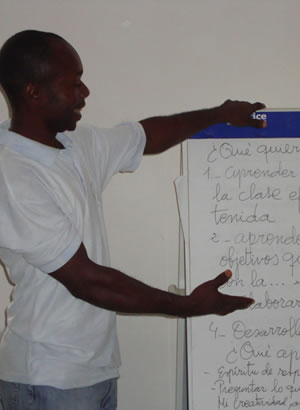 ice
¿Qué quier
1- Aprender
la clase e
tenida
2- aprende
objetivos qu
la...
laborar
4- Desarroll
¿Qué ap
- Espíritu de resp
- Preguntar lo qu
Mi creatividad